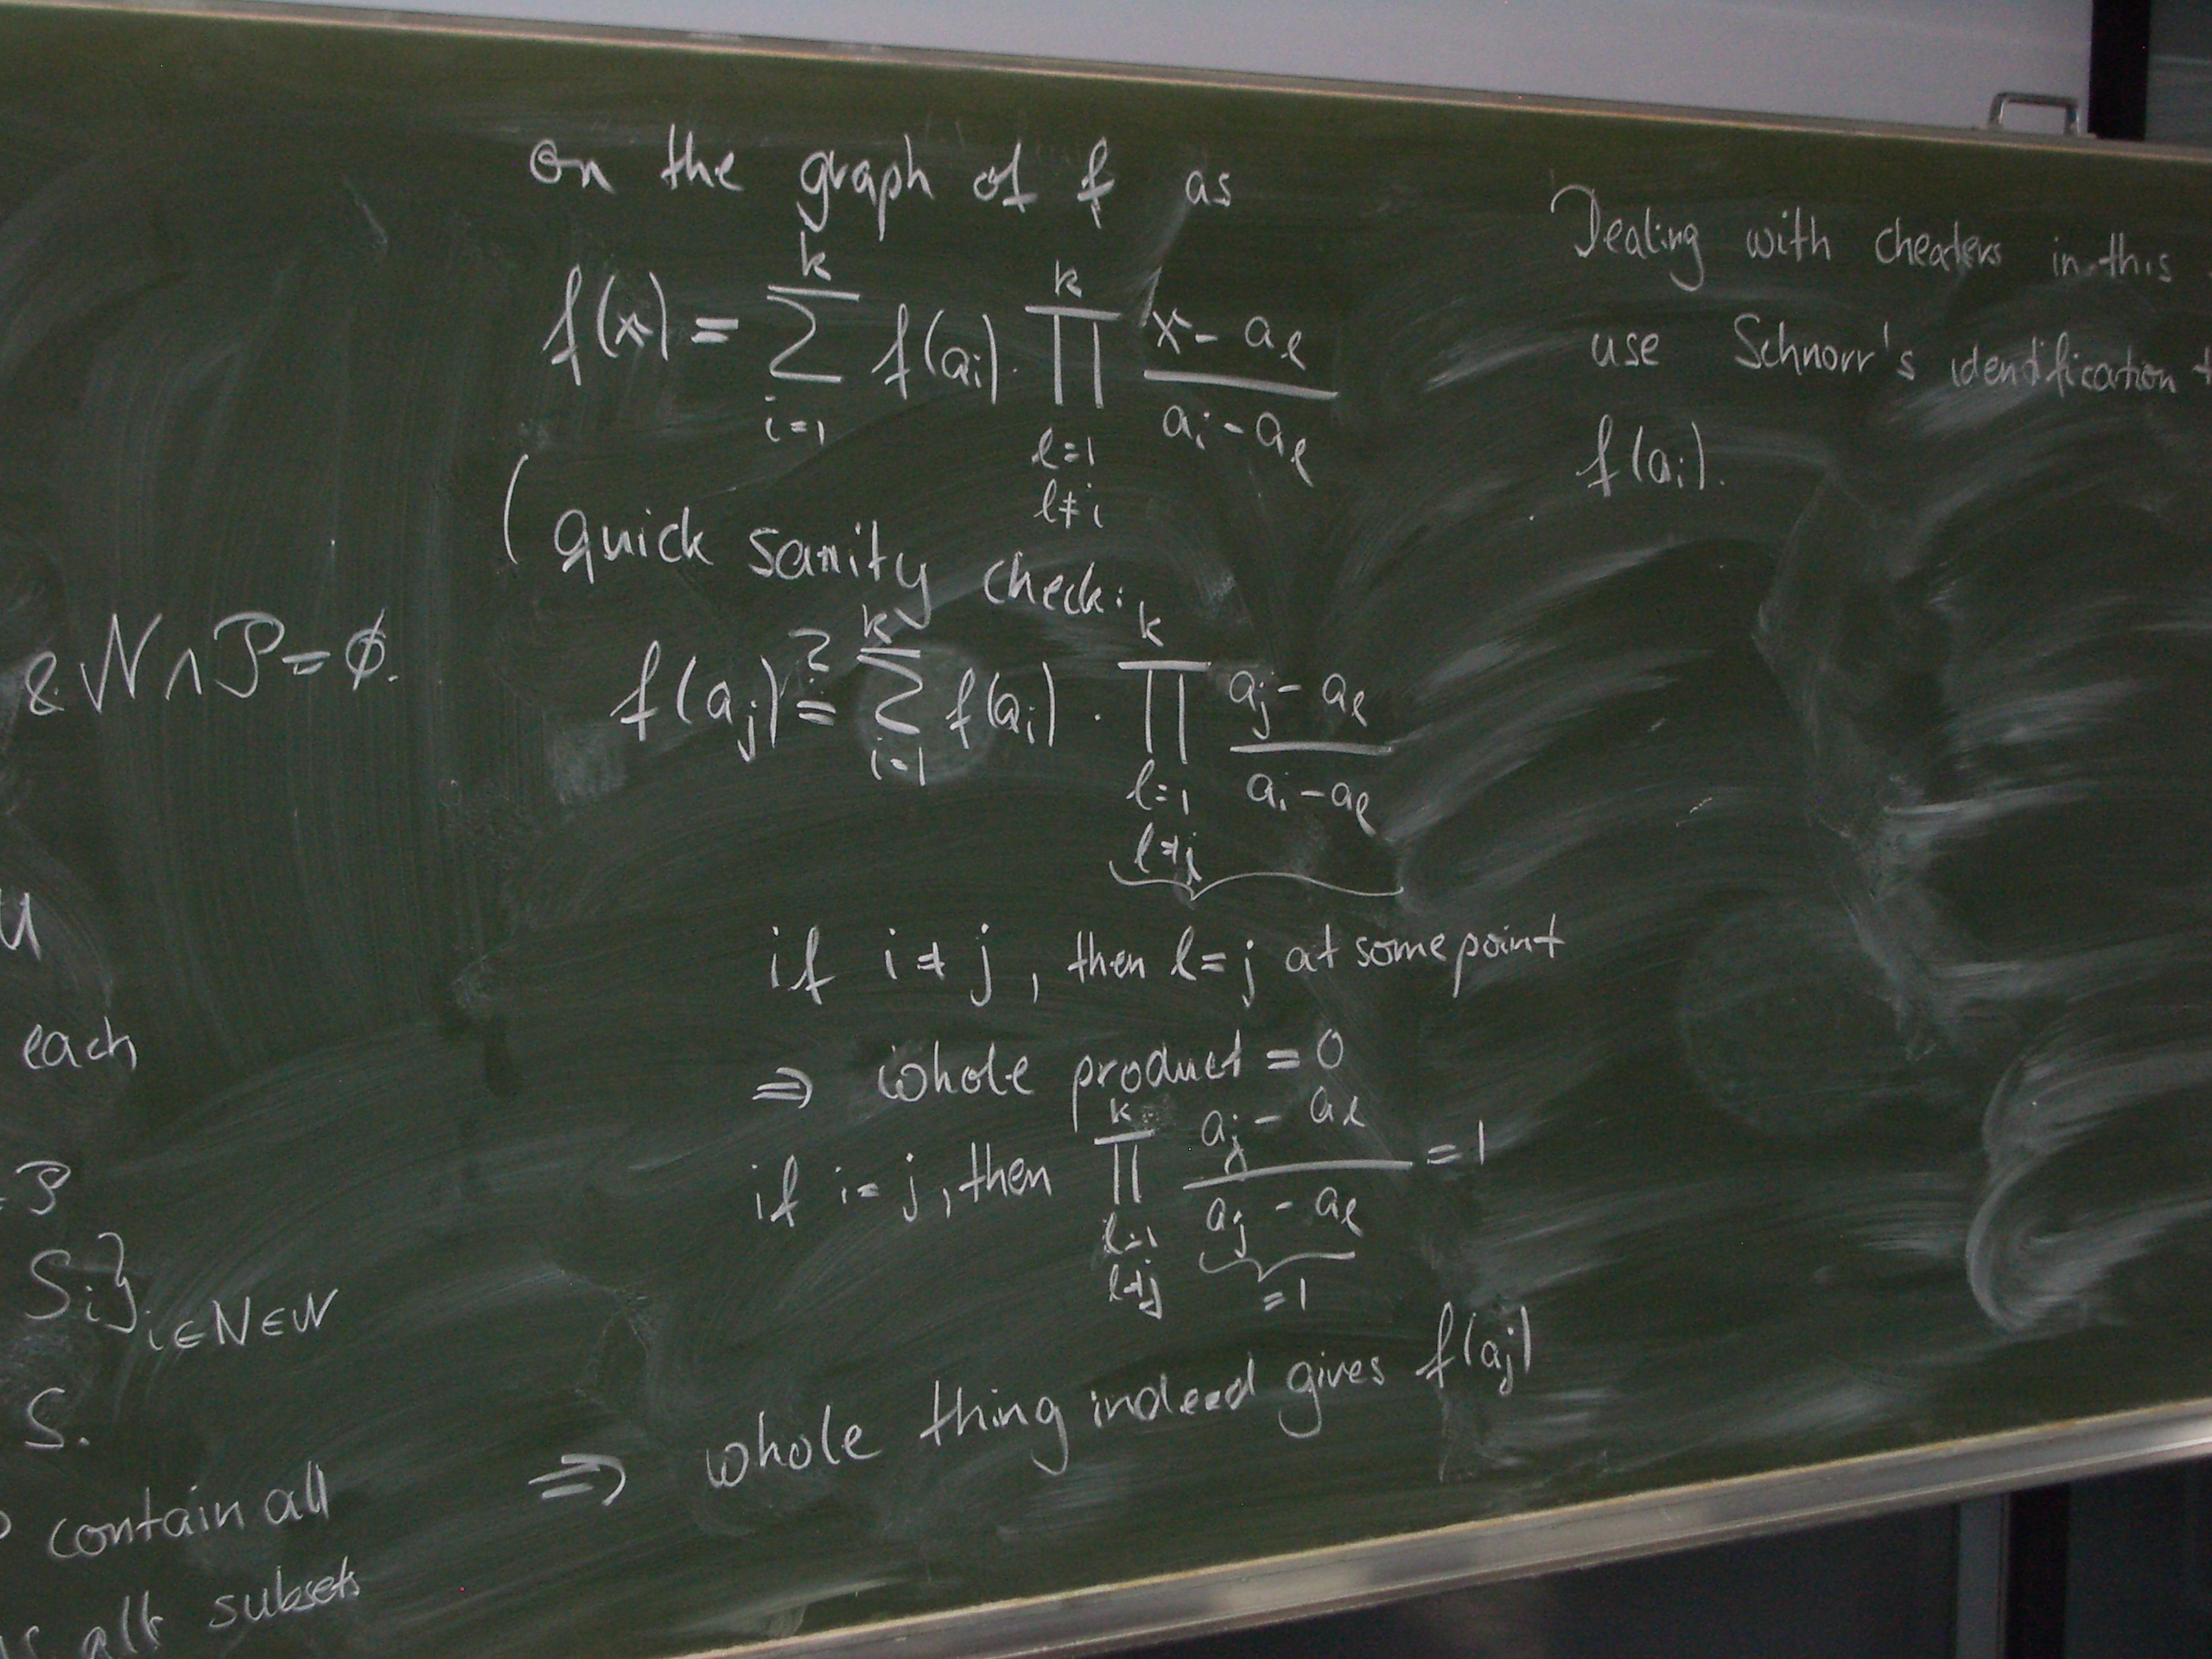 & N ∩ P = ∅.
U
each
P
S_i}_{i∈N∈N}
S.
contain all
all subsets
on the graph of f as
f(x) = \sum_{i=1}^{k} f(a_i) · \prod_{l=1, l≠i}^{k} \frac{x - a_l}{a_i - a_l}
(quick sanity check:
f(a_j) ?= \sum_{i=1}^{k} f(a_i) · \prod_{l=1, l≠j}^{k} \frac{a_j - a_l}{a_i - a_l}
if i ≠ j, then l = j at some point
⇒ whole product = 0
if i = j, then \prod_{l=1, l≠j}^{k} \frac{a_j - a_l}{a_j - a_l} = 1
= 1
⇒ whole thing indeed gives f(a_j)
Dealing with cheaters in this
use Schnorr's identification
f(a_i).